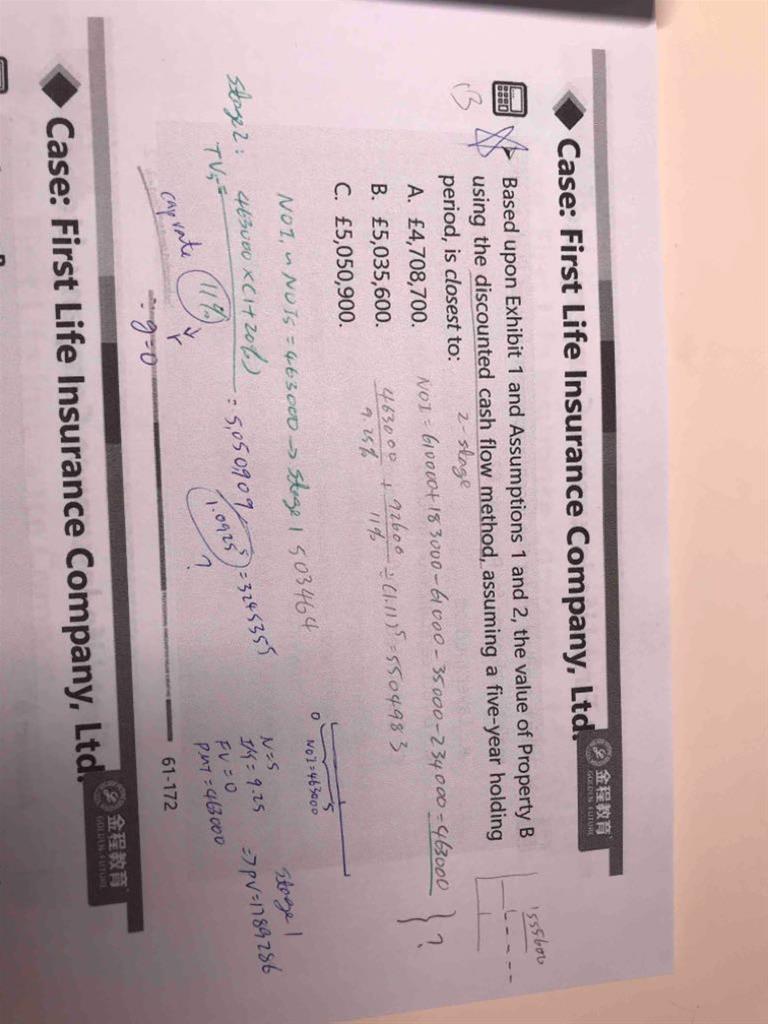 Case: First Life Insurance Company, Ltd.
金程教育
GOLDEN FUTURE
Based upon Exhibit 1 and Assumptions 1 and 2, the value of Property B
using the discounted cash flow method, assuming a five-year holding
period, is closest to:
2-stage
A. £4,708,700.
B. £5,035,600.
C. £5,050,900.
NOI = 610000+183000-61000-35000-234000=463000
} ?
463000 / 9.25% + 92600 / 11% ÷ (1.11)^5 = 5504983
NOI1 ~ NOI5 = 463000 → stage 1 503464
stage 2:
TV5 = 463000×(1+20%) / cap rate 11% = 5,050,909 / 1.0925^5 = 3245355
?
r
g=0
0 5
NOI=463000
stage 1
N=5
I/Y= 9.25
FV=0
PMT=463000
=7 PV=1789286
1555600
61-172
Case: First Life Insurance Company, Ltd.
金程教育
GOLDEN FUTURE